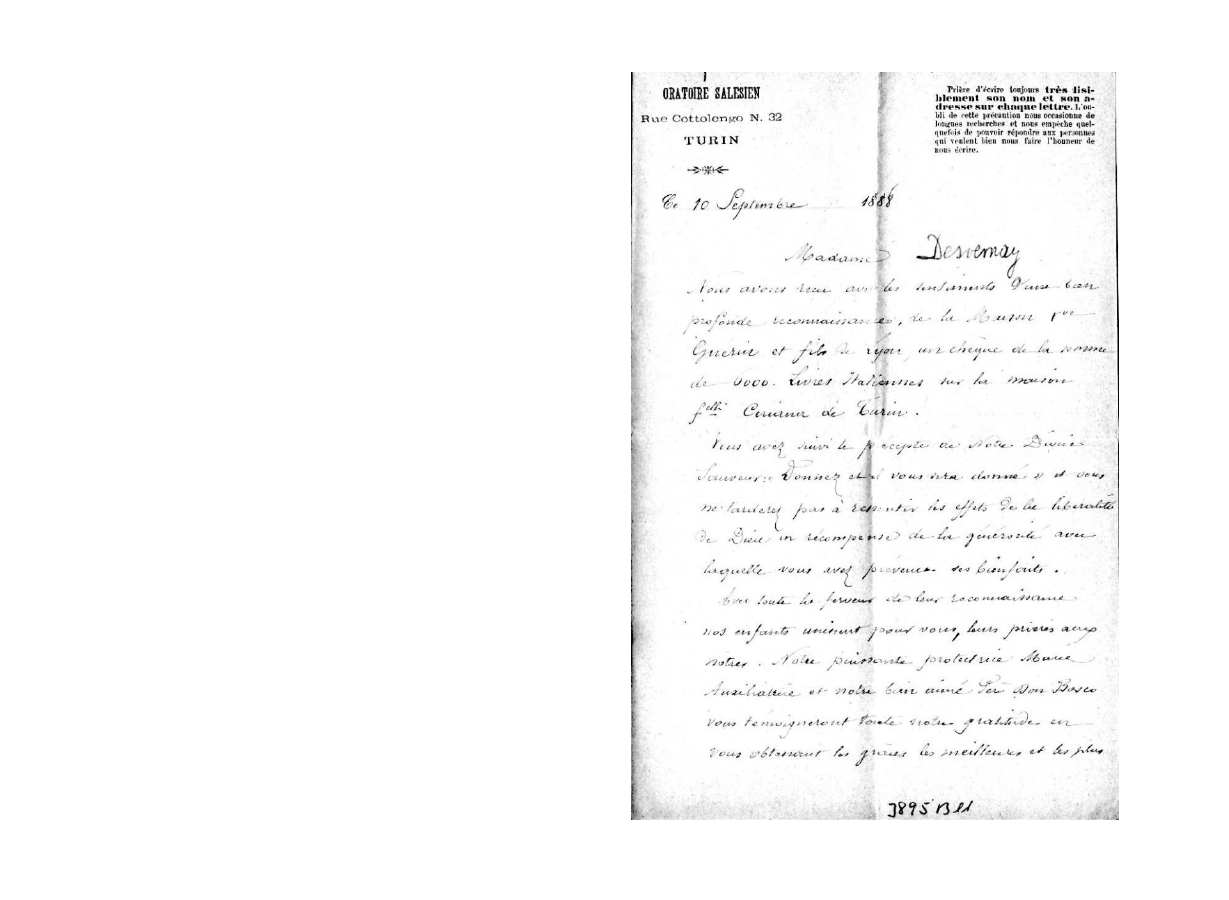 ORATOIRE SALESIEN
Rue Cottolengo N. 32
TURIN
Prière d'écrire toujours très lisi-
blement son nom et son a-
dresse sur chaque lettre. L'ou-
bli de cette précaution nous occasionne de
longues recherches et nous empêche quel-
quefois de pouvoir répondre aux personnes
qui veulent bien nous faire l'honneur de
nous écrire.
Ce 10 Septembre 1888
Madame Desvernay
Nous avons reçu avec les sentiments d'une bien
profonde reconnaissance, de la Maison Vve
Guerin et fils de Lyon, un chèque de la somme
de 6000. Livres Italiennes sur la maison
f.elli de Turin.
Vous avez suivi le precepte de Notre Divin
Sauveur: Donnez et il vous sera donné » et vous
ne tarderez pas à ressentir les effets de la liberalité
de Dieu en récompense de la générosité avec
laquelle vous avez prévenu ses bienfaits.
Avec toute la ferveur de leur reconnaissance
nos enfants unissent pour vous, leurs prières aux
notres. Notre puissante protectrice Marie
Auxiliatrice et notre bien aimé Père Don Bosco
vous témoigneront toute notre gratitude en
vous obtenant les grâces les meilleures et les plus
3895 B11